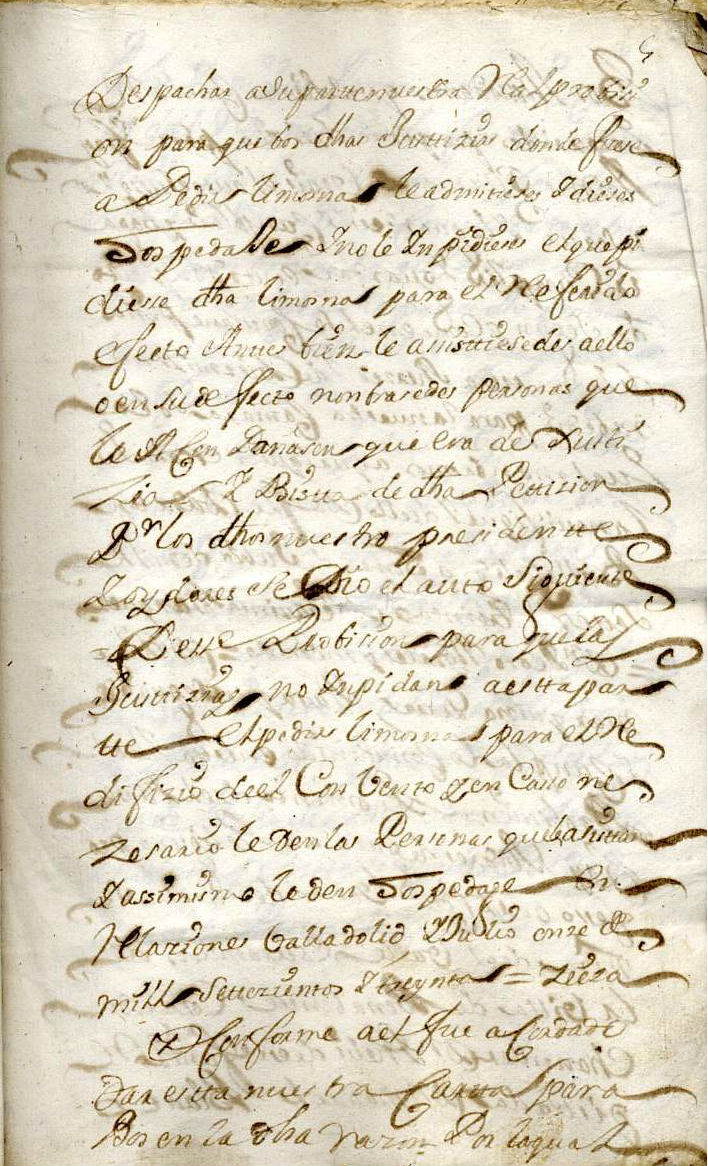 5
Despachar a su parte nuestra Real probisi
on para que bos dhas Justtizias donde fuese
a Pedir limosnas le admitieseis Y dieseis
Hospedaje Y no le Ynpidieseis el que pi
diese dha limosna para el Referido
efecto Antes bien le asisttiesedes a ello
o en su defecto nonbrasedes personas que
le AConpañasen que era de Justi
zia Y Bista de dha Pettizion
Por los dhos nuestro presidentte
Y oydores se Dio el auto Siguiente
Dese Probision para que las
Justtizias no Ynpidan a estta par
tte el pedir limosnas para el Re
difizio de el Conbento Y en Caso ne
zesario le Den las Personas que asistan
Y assimismo le den Hospedaje En
Relaziones Balladolid Y Julio onze de
mill Settezientos Y treynta =
Y Conforme a el fue aCordado
Dar estta nuestra Cartta para
Bos en la dha razon Por la qual